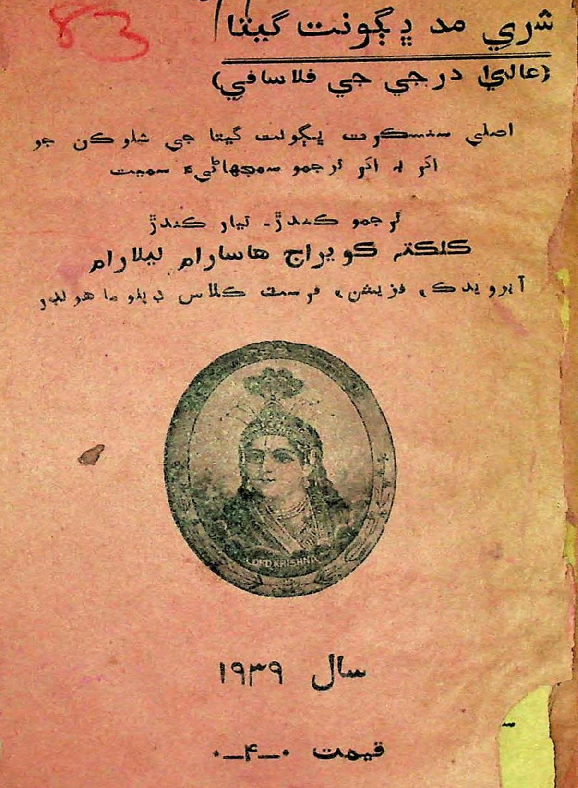 83
شري مد ڀڳونت گيتا
(عاليٰ درجي جي فلاسافي)
اصلي سنسڪرت ڀڳونت گيتا جي شلوڪن جو
اکر به اکر ترجمو سمجهاڻيءَ سميت
ترجمو ڪندڙ۔ تيار ڪندڙ
ڪلڪتہ ڪويراج هاسارام ليلارام
آيورويدڪ، فزيشن، فرسٽ ڪلاس ڊپلوما هولڊر
LORD KRISHNA
سال ١٩٣٩
قيمت ٠ــ۴ــ٠